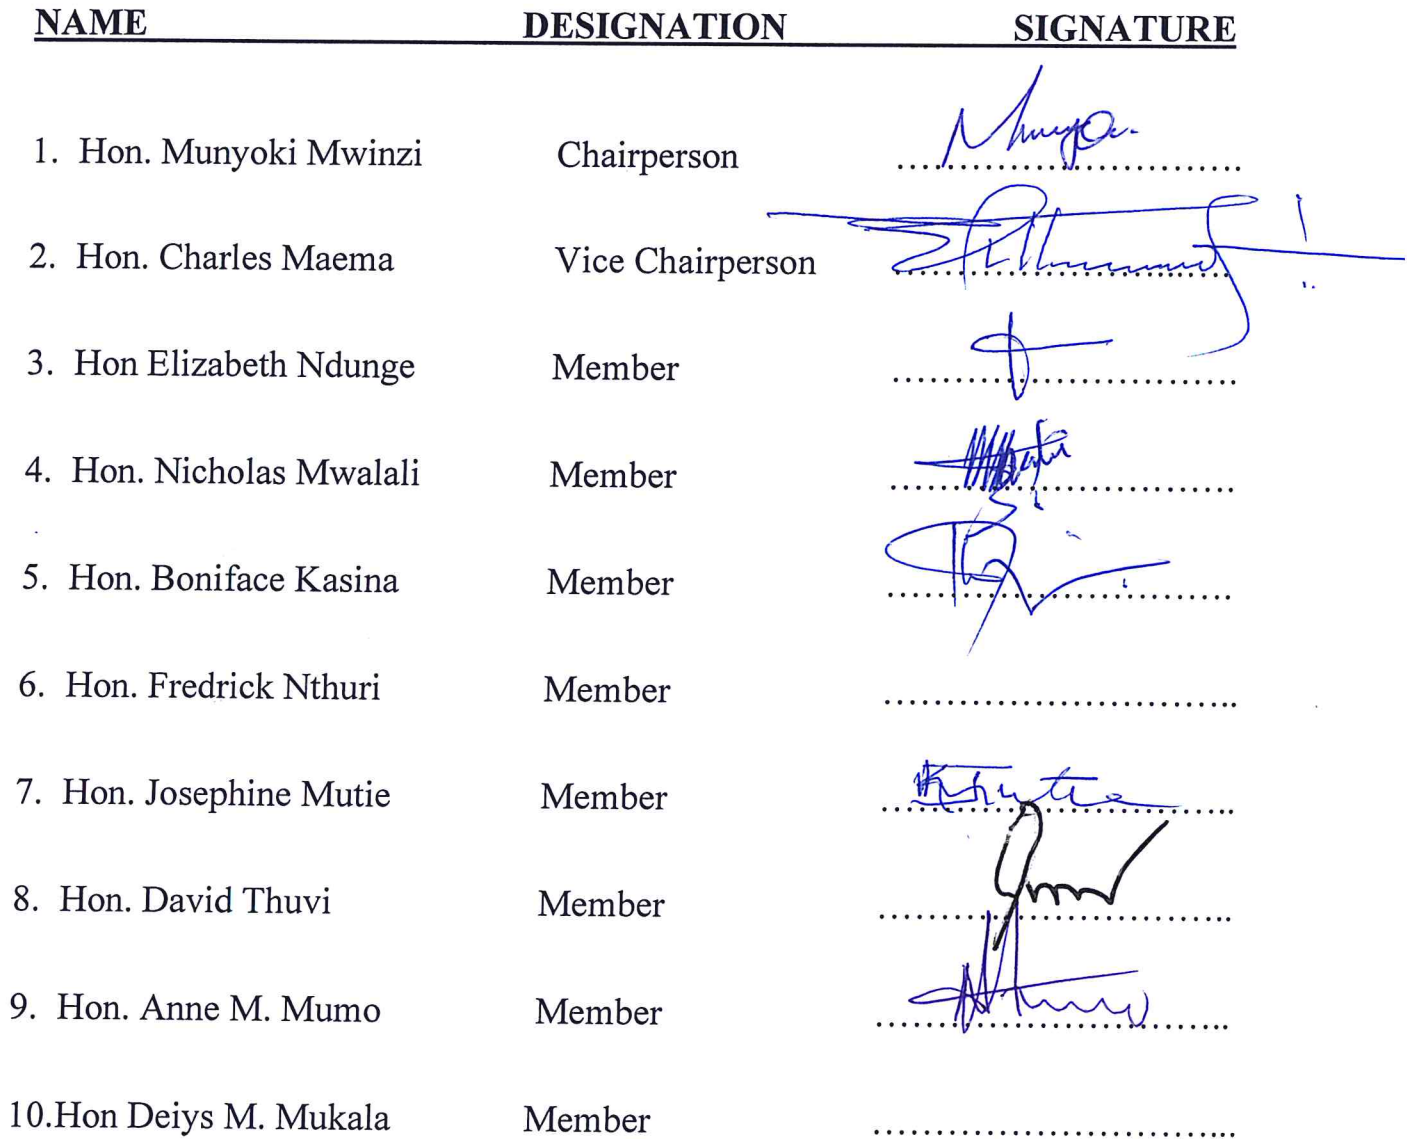 NAME DESIGNATION SIGNATURE
1. Hon. Munyoki Mwinzi Chairperson ..............................
2. Hon. Charles Maema Vice Chairperson ..............................
3. Hon Elizabeth Ndunge Member ..............................
4. Hon. Nicholas Mwalali Member ..............................
5. Hon. Boniface Kasina Member ..............................
6. Hon. Fredrick Nthuri Member ..............................
7. Hon. Josephine Mutie Member ..............................
8. Hon. David Thuvi Member ..............................
9. Hon. Anne M. Mumo Member ..............................
10.Hon Deiys M. Mukala Member ..............................